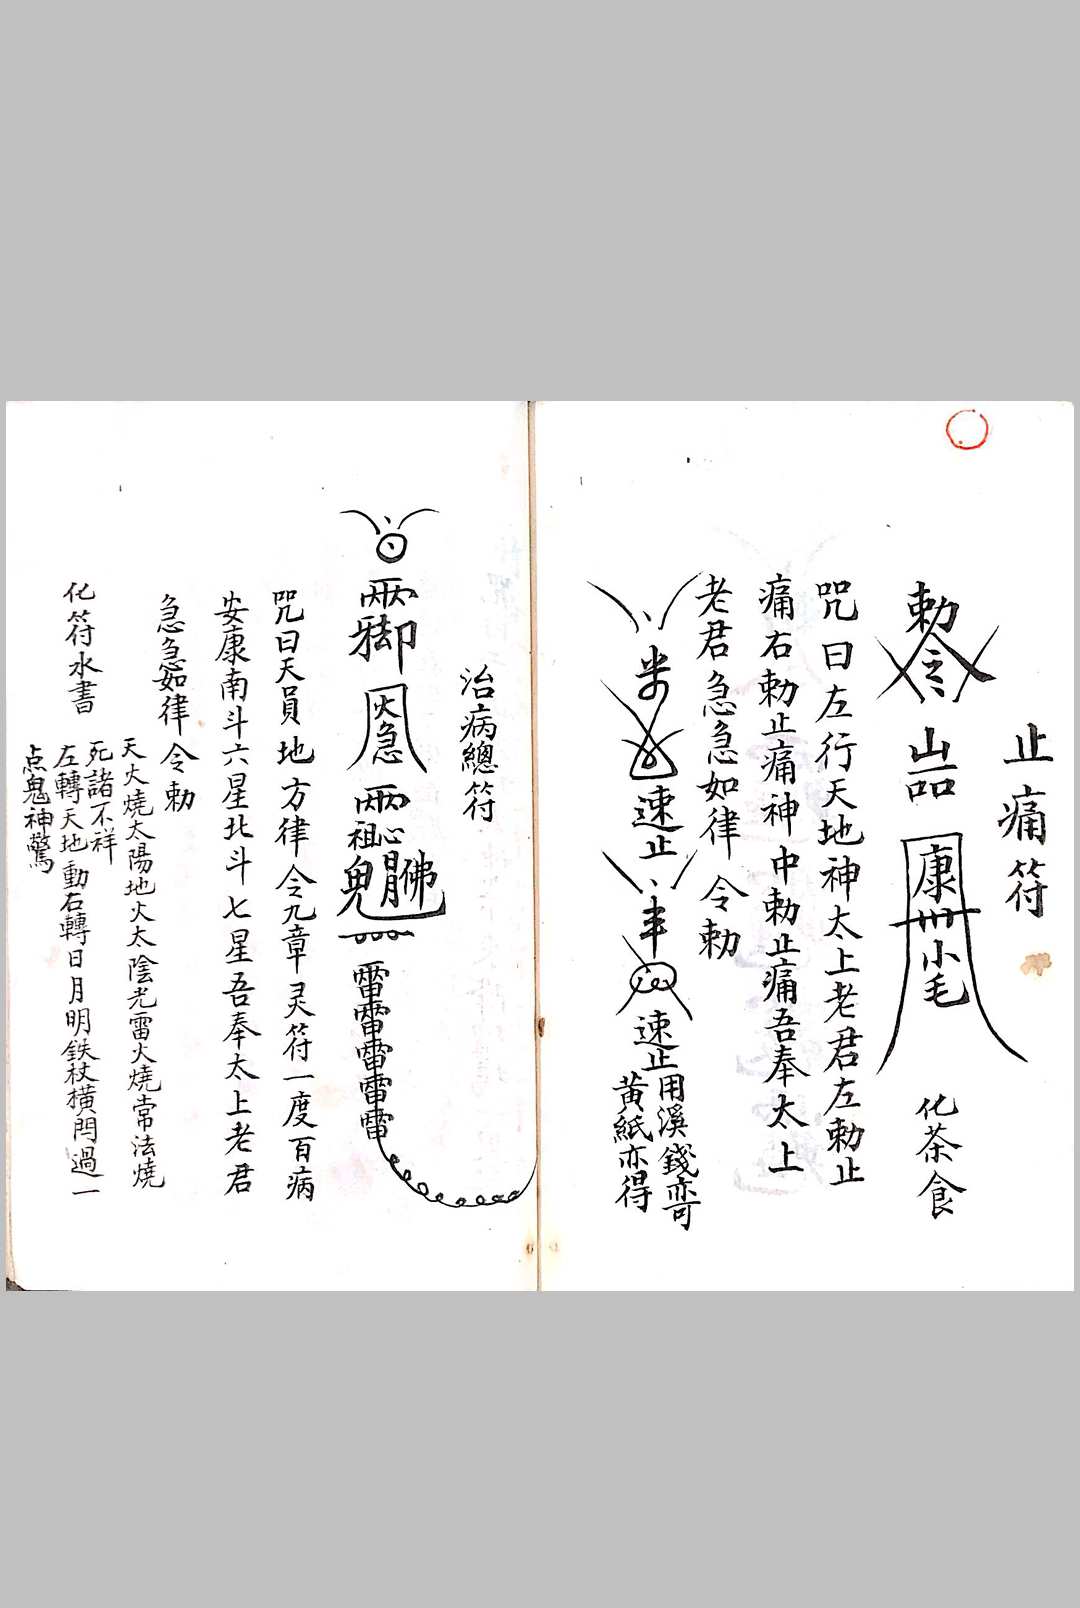 止痛符
勅令
品
康
毛
化茶食
咒曰左行天地神太上老君左勅止
痛右勅止痛神中勅止痛吾奉太上
老君急急如律令勅
速止
速止
用溪錢亦可
黃紙亦得
治病總符
雷雷雷雷雷
咒曰天員地方律令九章灵符一度百病
安康南斗六星北斗七星吾奉太上老君
急急如律令勅
天火燒太陽地火太陰光雷火燒常法燒
死諸不祥
化符水書
左轉天地動右轉日月明鉄杖橫門過一
点鬼神驚